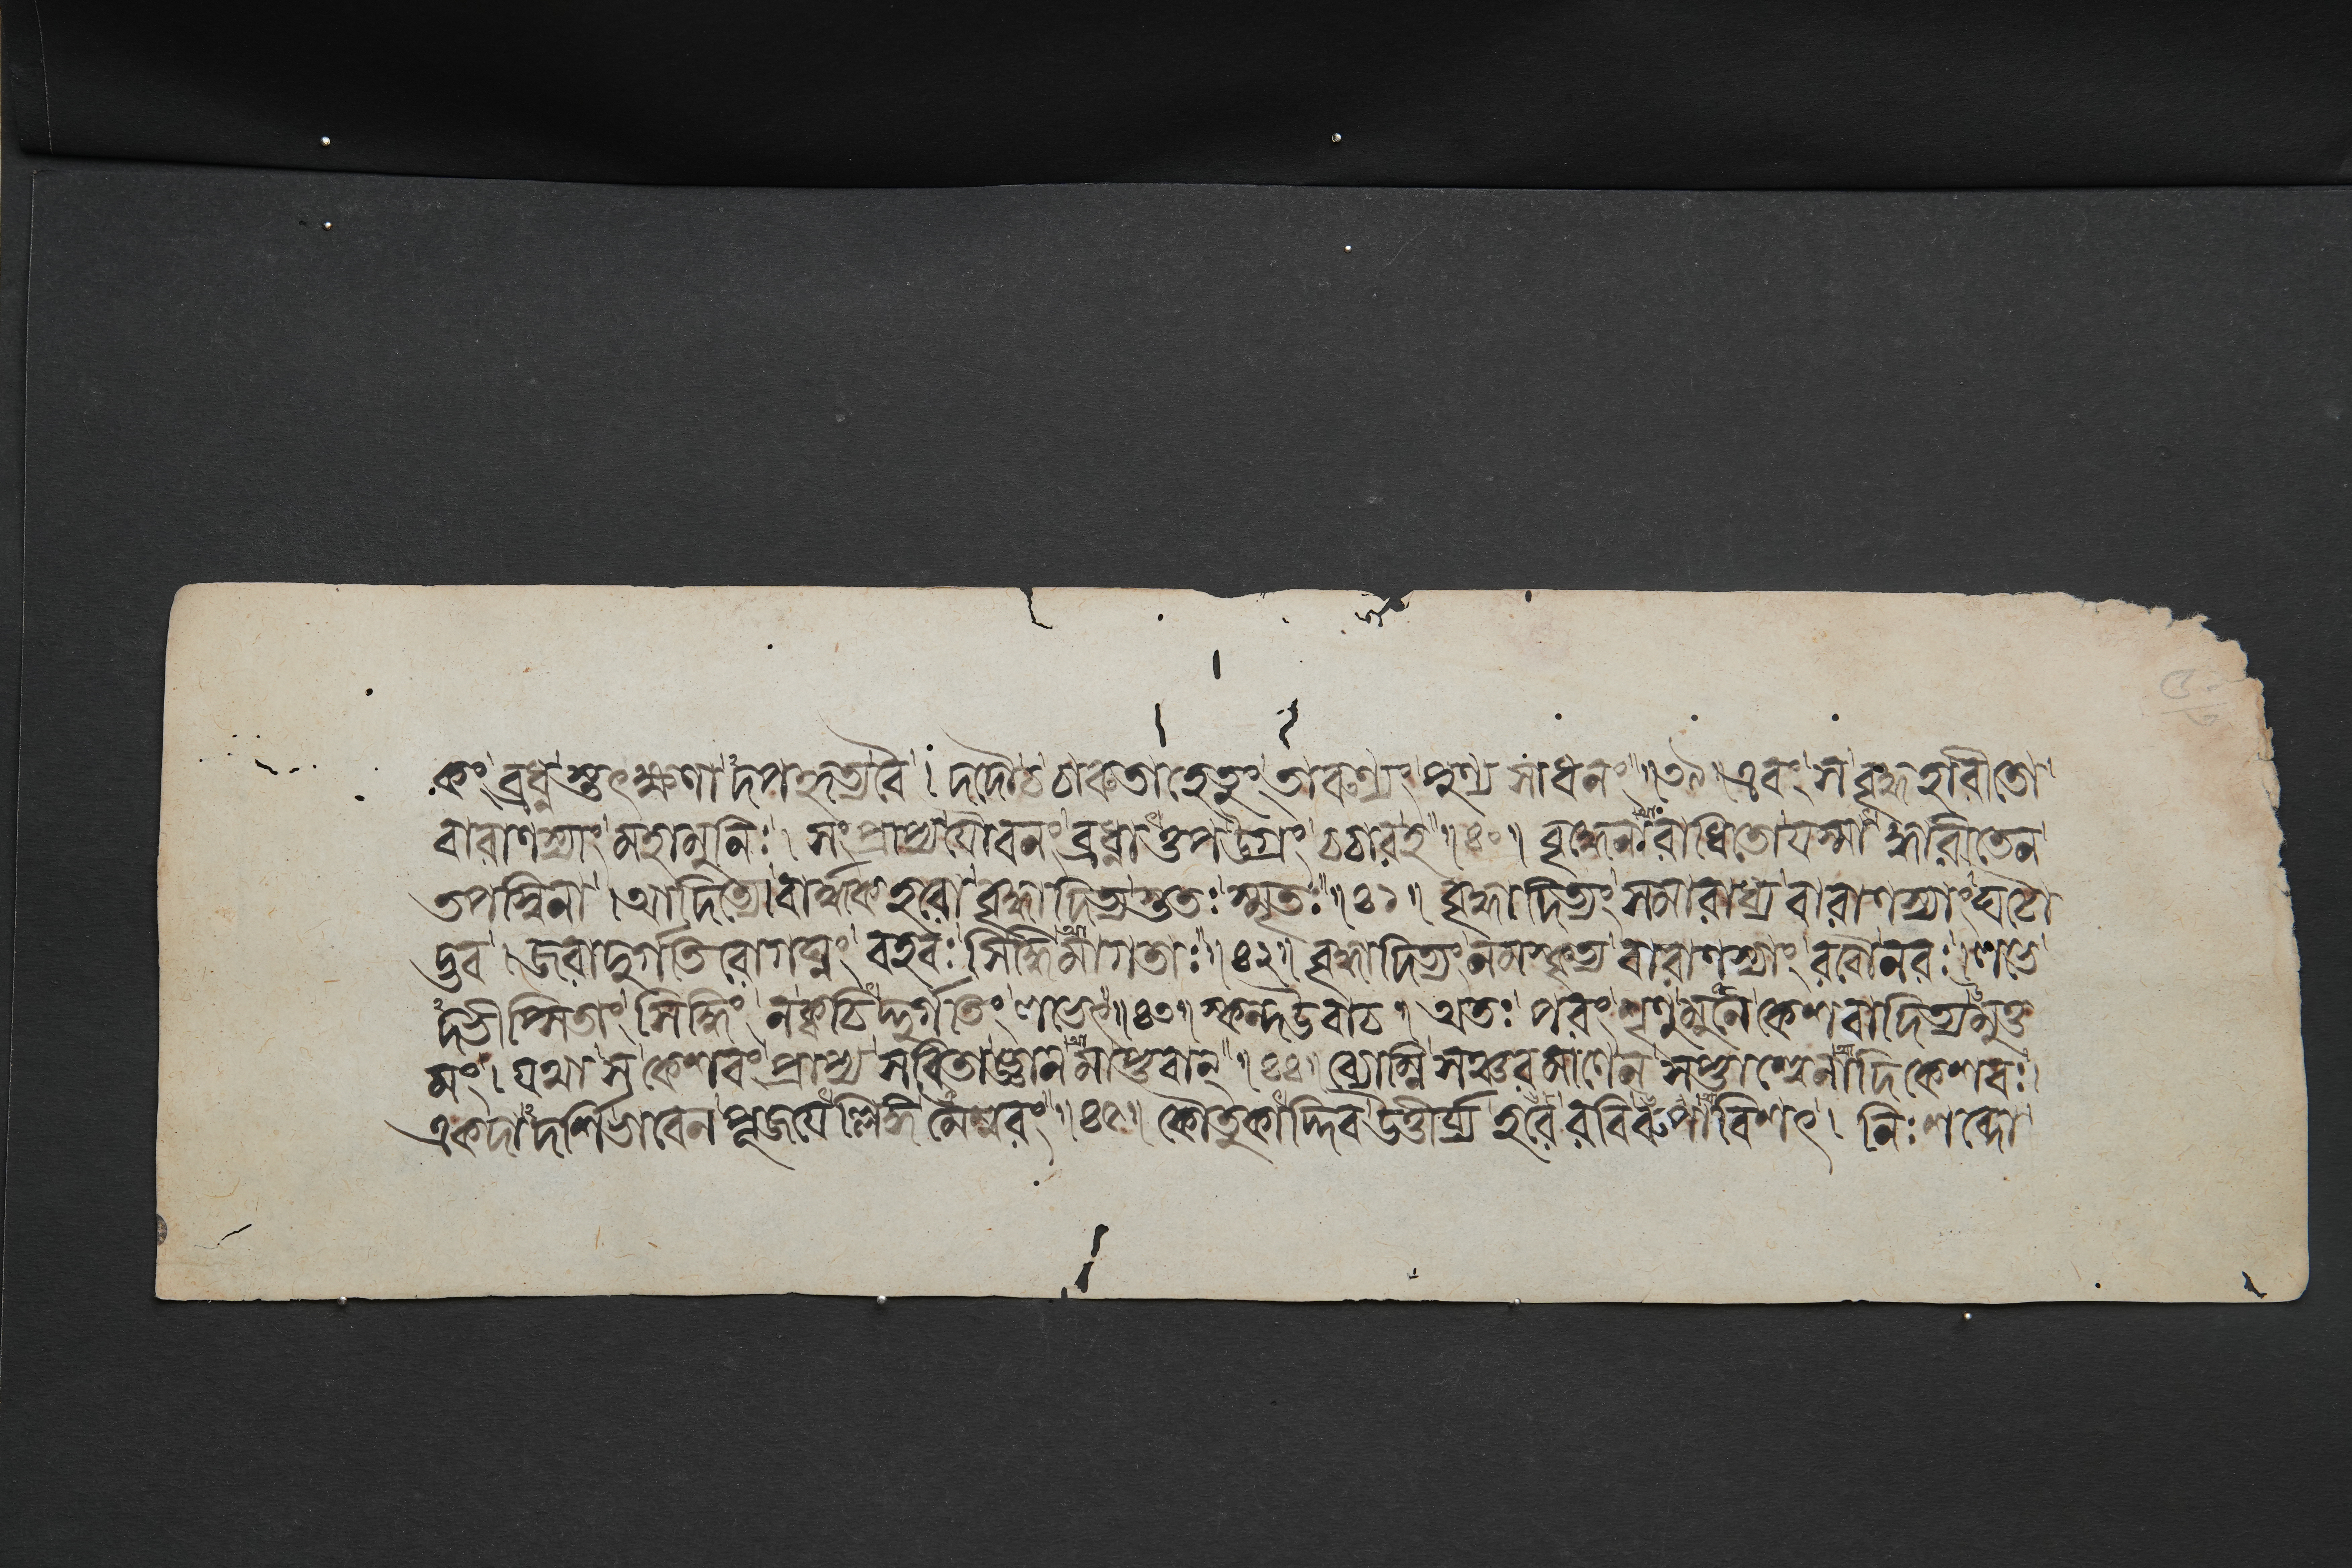 কং ব্রধ্নস্তৎক্ষণাদপহৃত্য বৈ । দদৌ চ চারুতাহেতুং তারুণ্যং পুণ্যসাধনং ॥ ৩৯ ॥ এবং স বৃদ্ধহারীতো
বারাণস্যাং মহামুনিঃ । সংপ্রাপ্য যৌবনং ব্রধ্নাত্তপ উগ্রং চচার হ ॥ ৪০ ॥ বৃদ্ধেনারাধিতো যস্মাদ্ধারীতেন
তপস্বিনা । আদিত্যো বার্দ্ধকহরো বৃদ্ধাদিত্যস্ততঃ স্মৃতঃ ॥ ৪১ ॥ বৃদ্ধাদিত্যং সমারাধ্য বারাণস্যাং ঘটো
দ্ভব । জরাদুর্গতিরোগঘ্নং বহবঃ সিদ্ধিমাগতাঃ ॥ ৪২ ॥ বৃদ্ধাদিত্যং নমস্কৃত্য বারাণস্যাং রবৌ নরঃ । লভে
দভীপ্সিতাং সিদ্ধিং ন ক্বচিদ্দুর্গতিং লভেৎ ॥ ৪৩ ॥ স্কন্দ উবাচ ॥ অতঃ পরং শৃণু মুনে কেশবাদিত্যমুত্ত
মং । যথা স কেশবং প্রাপ্য সবিতা জ্ঞানমাপ্তবান্ ॥ ৪৪ ॥ ব্যোম্নি সঞ্চরমাণেন সপ্তাশ্বেনাদিকেশবঃ ।
একদাদর্শি ভাবেন পূজয়ল্লিঙ্গমৈশ্বরং ॥ ৪৫ ॥ কৌতুকাদিব উত্তীর্য্য হরে রবিরুপাবিশৎ । নিঃশব্দো